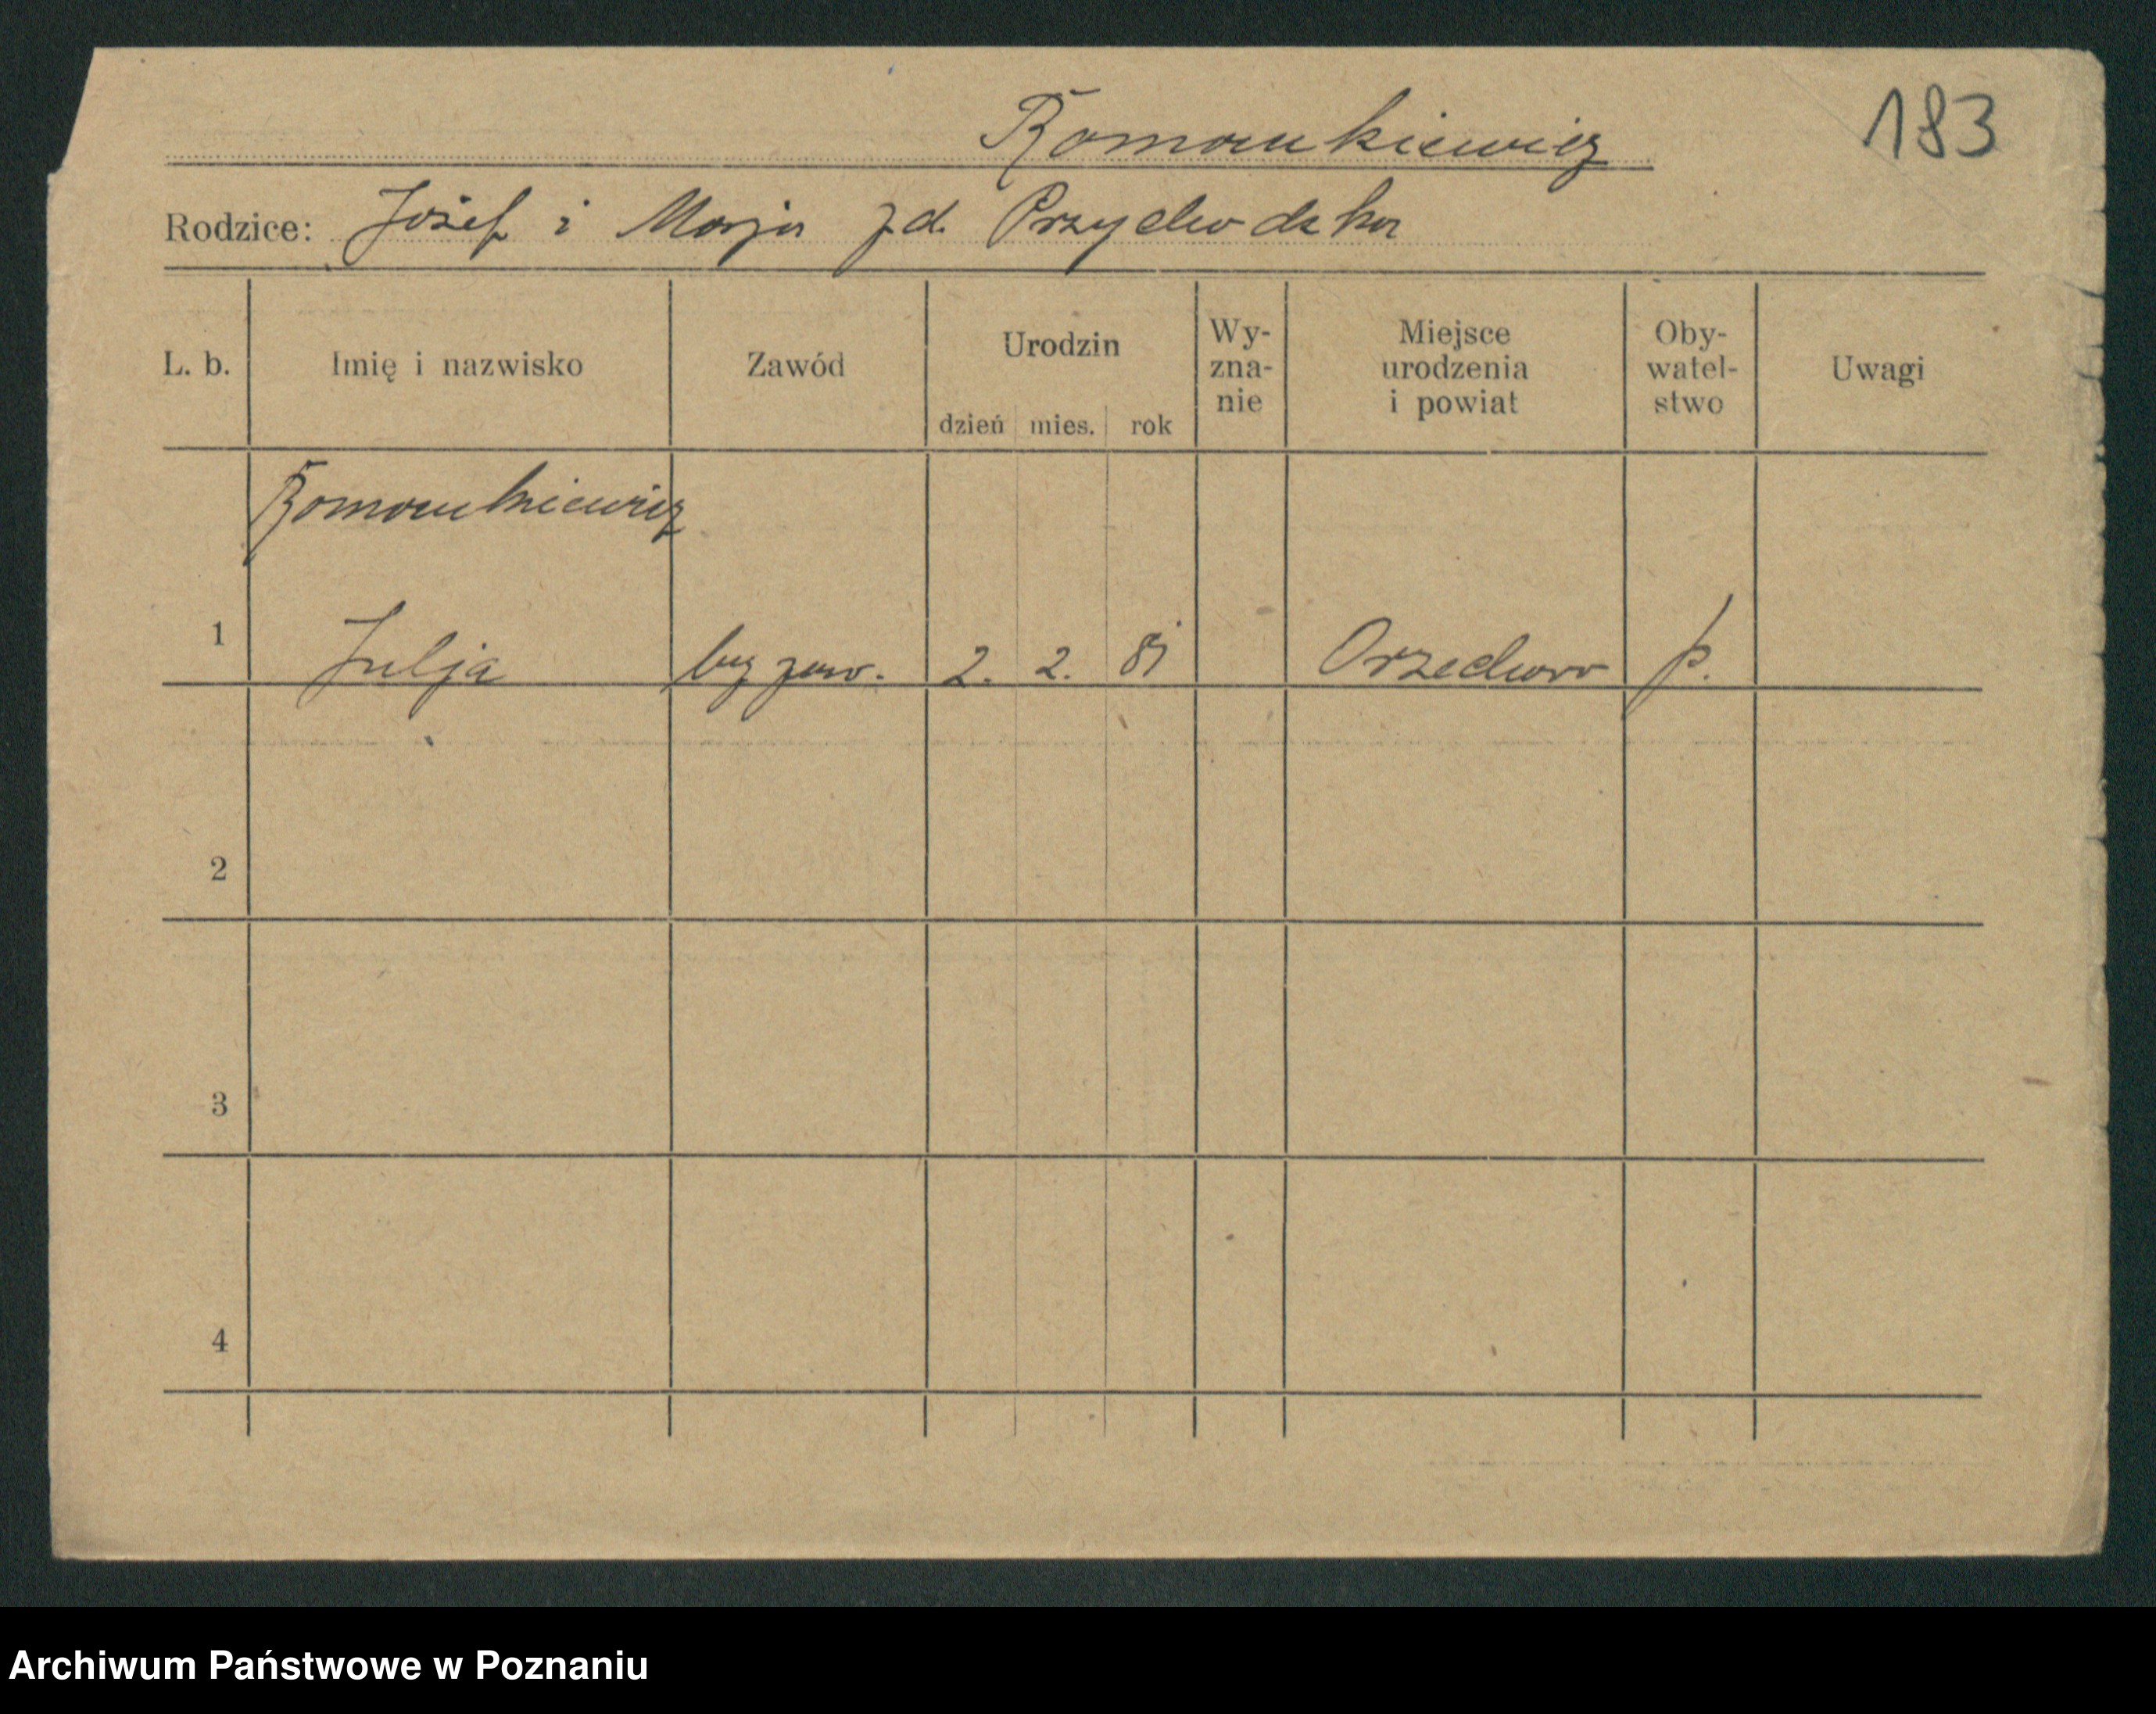 183
Romankiewicz
Rodzice: Józef i Marja zd. Przychodzka
L. b. Imię i nazwisko Zawód Urodzin Wy-zna-nie Miejsce urodzenia i powiat Oby-watel-stwo Uwagi
dzień mies. rok
Romankiewicz
1 Julja bez zaw. 2. 2. 81 Orzechowo p.
2
3
4
Archiwum Państwowe w Poznaniu